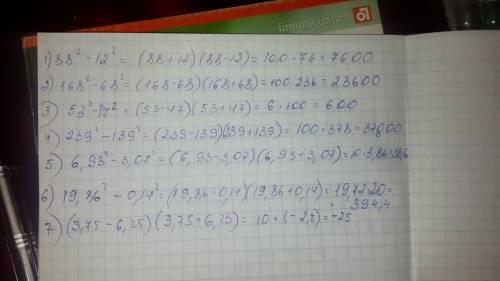 ümumi dəftər
1) 88² - 12² = (88+12)(88-12) = 100·76 = 7600
2) 168² - 68² = (168-68)(168+68) = 100·236 = 23600
3) 53² - 47² = (53-47)(53+47) = 6·100 = 600
4) 239² - 139² = (239-139)(239+139) = 100·378 = 37800
5) 6,93² - 3,07² = (6,93-3,07)(6,93+3,07) = 10·3,86 = 38,6
6) 19,86² - 0,14² = (19,86-0,14)(19,86+0,14) = 19,72·20 =
= 394,4
7) (3,75-6,25)(3,75+6,25) = 10·(-2,5) = -25